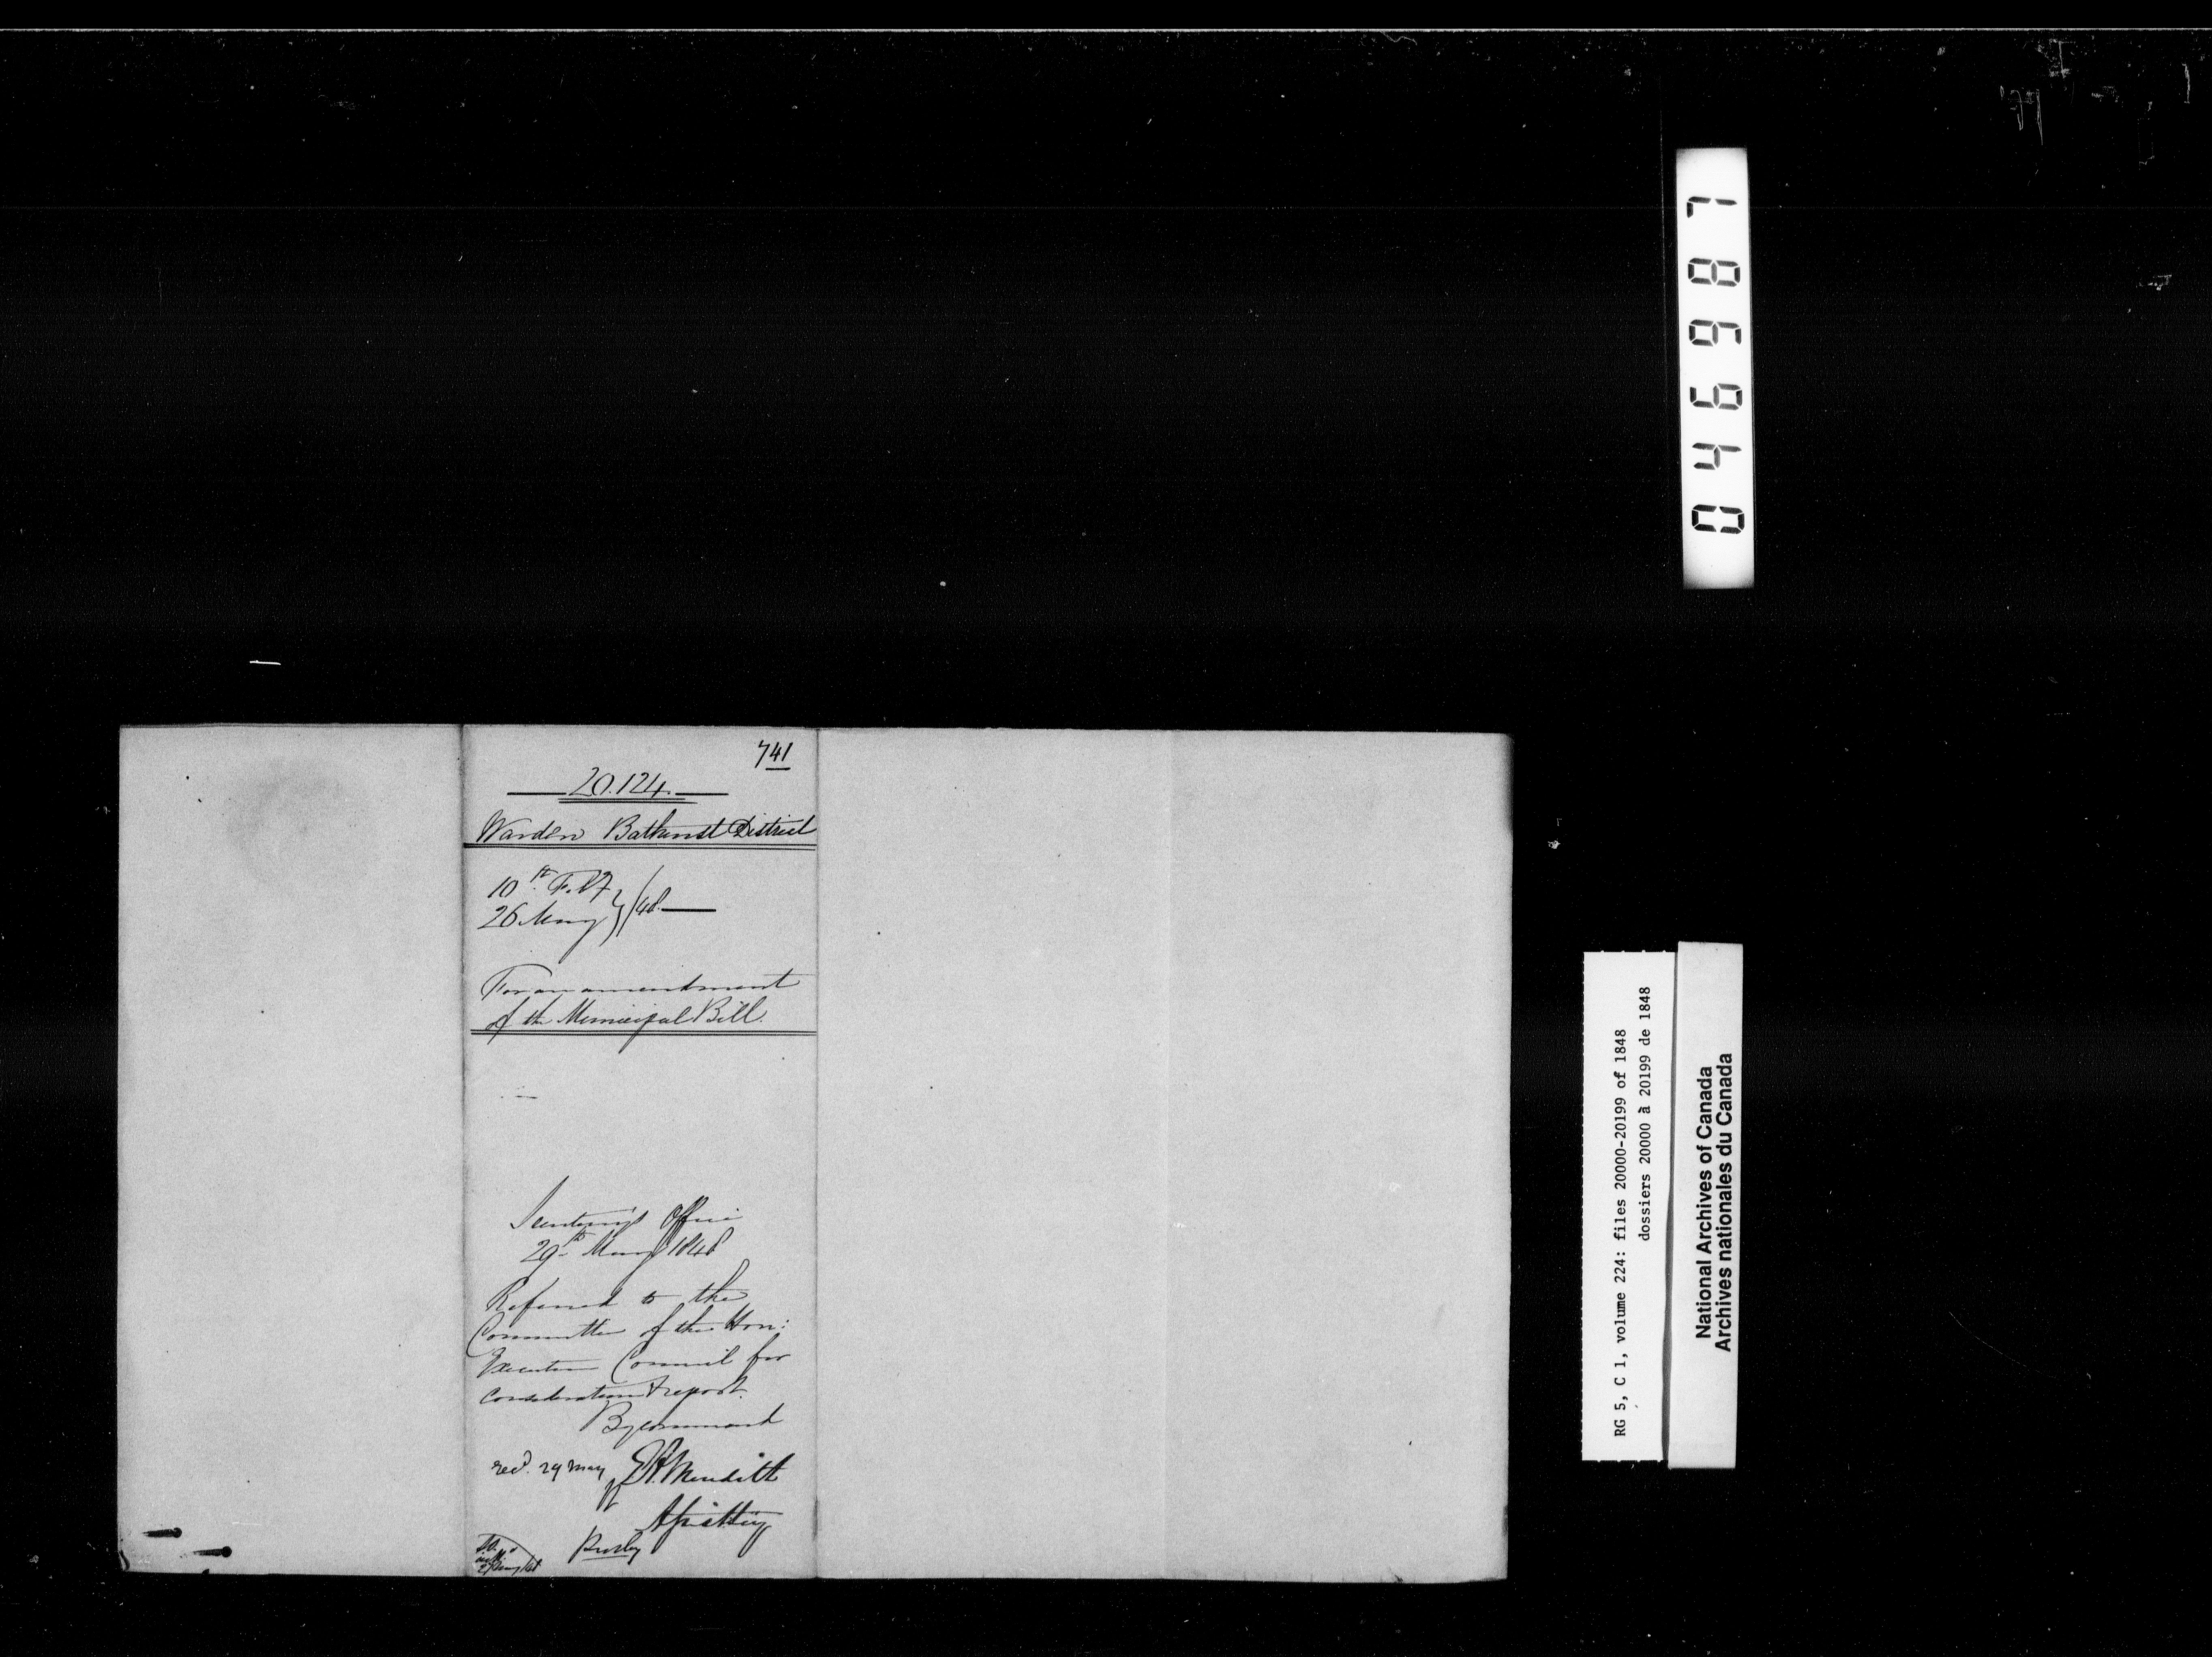 741
20.124.
Warden Bathurst District
10th Feb
26 May } /48.
For an amendment
of the Municipal Bill.
Secretary's Office
29th May 1848
Referred to the
Committee of the Hon:
Executive Council for
consideration & report.
By command
recd. 29 May E A Meredith
Asst Secy
046987
RG 5, C 1, volume 224: files 20000-20199 of 1848
dossiers 20000 à 20199 de 1848
National Archives of Canada
Archives nationales du Canada